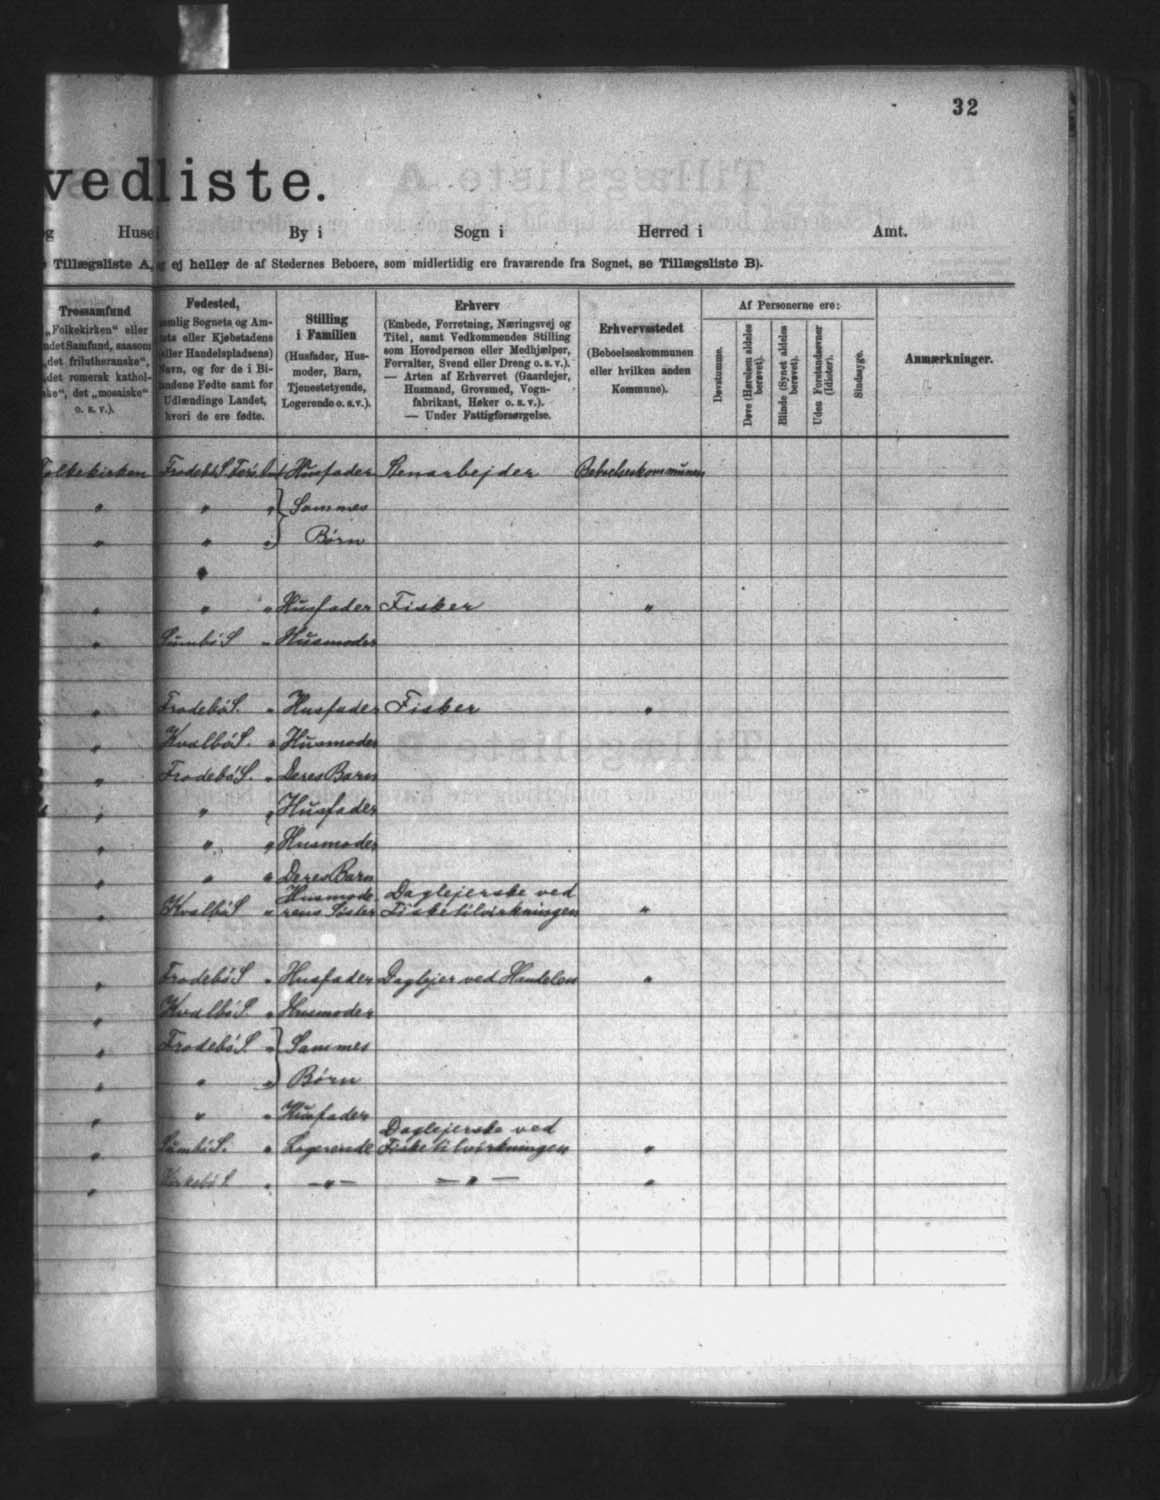 32
vedliste.
g Huse By i Sogn i Herred i Amt.
Tillægsliste A, ej heller de af Stedernes Beboere, som midlertidig ere fraværende fra Sognet, se Tillægsliste B).
Trossamfund
„Folkekirken“ eller
ndet Samfund, saasom
„det frilutheranske“,
„det romersk kathol-
ske“, det „mosaiske“
o. s. v.).
Fødested,
nemlig Sognets og Am-
ets eller Kjøbstadens
eller Handelspladsens)
Navn, og for de i Bi-
landene Fødte samt for
Udlændinge Landet,
hvori de ere fødte.
Stilling
i Familien
(Husfader, Hus-
moder, Barn,
Tjenestetyende,
Logerende o. s. v.).
Erhverv
(Embede, Forretning, Næringsvej og
Titel, samt Vedkommendes Stilling
som Hovedperson eller Medhjælper,
Forvalter, Svend eller Dreng o. s. v.).
— Arten af Erhvervet (Gaardejer,
Husmand, Grovsmed, Vogn-
fabrikant, Høker o. s. v.).
— Under Fattigforsørgelse.
Erhvervsstedet
(Beboelseskommunen
eller hvilken anden
Kommune).
Af Personerne ere:
Døvstumme.
Døve (Hørelsen aldeles
berøvet).
Blinde (Synet aldeles
berøvet).
Uden Forstandsevner
(Idioter).
Sindssyge.
Anmærkninger.
Folkekirken Frodebø S. Husfader Stenarbejder Beboelseskommunen
" " " } Sammes
" " " } Børn
" " " Husfader Fisker "
" Sumbø S " Husmoder
" Frodebø S. " Husfader Fisker "
" Kvalbø S. " Husmoder
" Frodebø S. " Deres Barn
" " " Husfader
" " " Husmoder
" " " Deres Barn
" Kvalbø S " Husmode- Daglejerske ved
rens Søster Fisketilvirkningen "
" Frodebø S " Husfader Daglejer ved Handelen "
" Kvalbø S. " Husmoder
" Frodebø S. " } Sammes
" " " } Børn
" " " Husfader
" Sumbø S. " Logerende Daglejerske ved
Fisketilvirkningen "
" " — " — — " — "